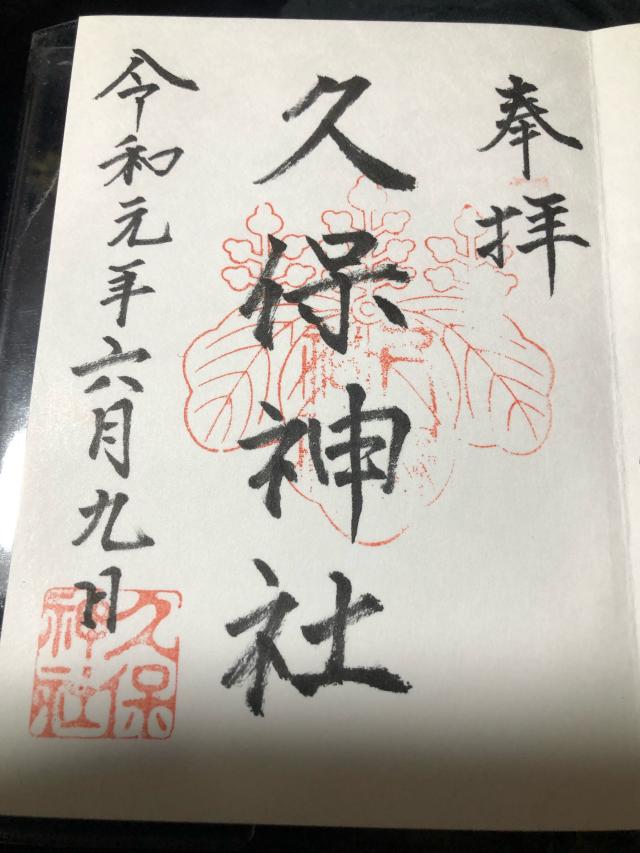 奉拝
久保神社
令和元年六月九日
久保
神社